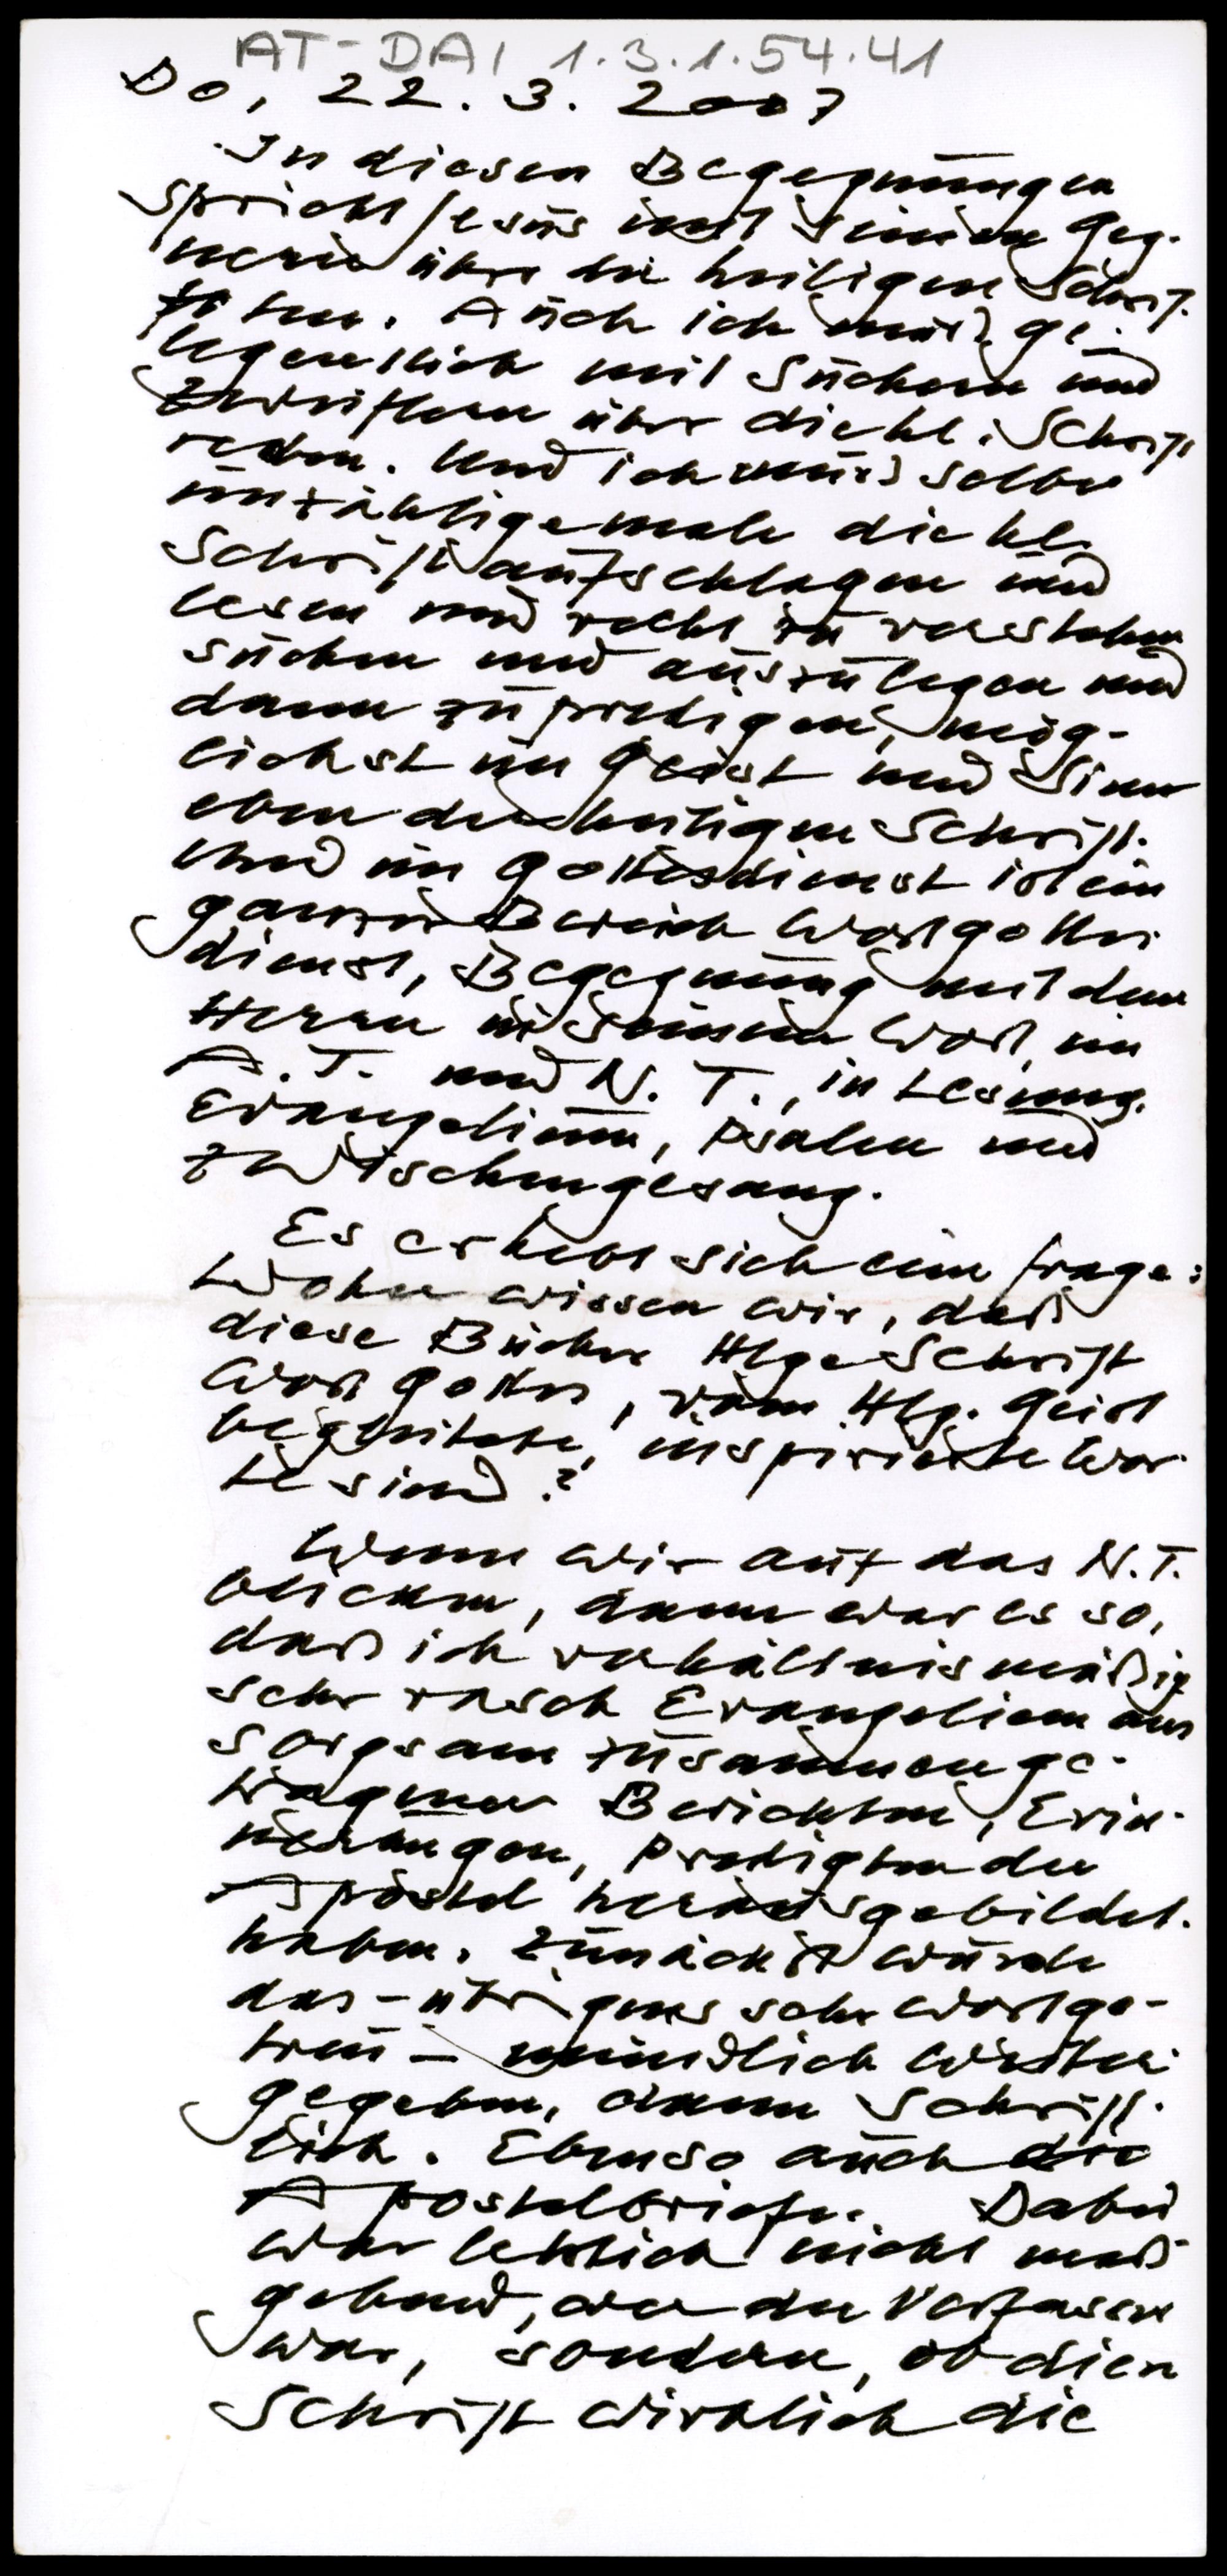 AT-DAI 1.3.1.54.41
Do, 22. 3. 2007
In diesen Begegnungen
spricht Jesus mit seinen Geg-
nern über die heiligen Schrif-
ten. Auch ich muß ge-
legentlich mit Suchern und
Zweiflern über die hl. Schrift
reden. Und ich muß selber
unzähligemale die hl.
Schrift aufschlagen und
lesen und recht zu verstehen
suchen und auszulegen und
dann zu predigen, mög-
lichst im Geist und Sinn
eben der heiligen Schrift.
Und im Gottesdienst ist ein
ganzer Bereich Wortgottes
dienst, Begegnung mit dem
Herrn in seinem Wort, im
A.T. und N.T., in Lesung,
Evangelium, Psalm und
Zwischengesang.
Es erhebt sich eine Frage:
Woher wissen wir, daß
diese Bücher Hlge Schrift
Wort Gottes, vom Hlg. Geist
begleitete, inspirierte Wor
te sind?
Wenn wir auf das N.T.
blicken, dann war es so,
daß ich verhältnismäßig
sehr rasch Evangelien aus
sorgsam zusammenge-
tragenen Berichten, Erin-
nerungen, Predigten der
Apostel herausgebildet
haben. Zunächst wurde
das - übrigens sehr wortge-
treu - mündlich weiter
gegeben, dann schrift-
lich. Ebenso auch die
Apostelbriefe. Dabei
war letztlich nicht maß-
gebend, wer der Verfasser
war, sondern, ob diese
Schrift wirklich die